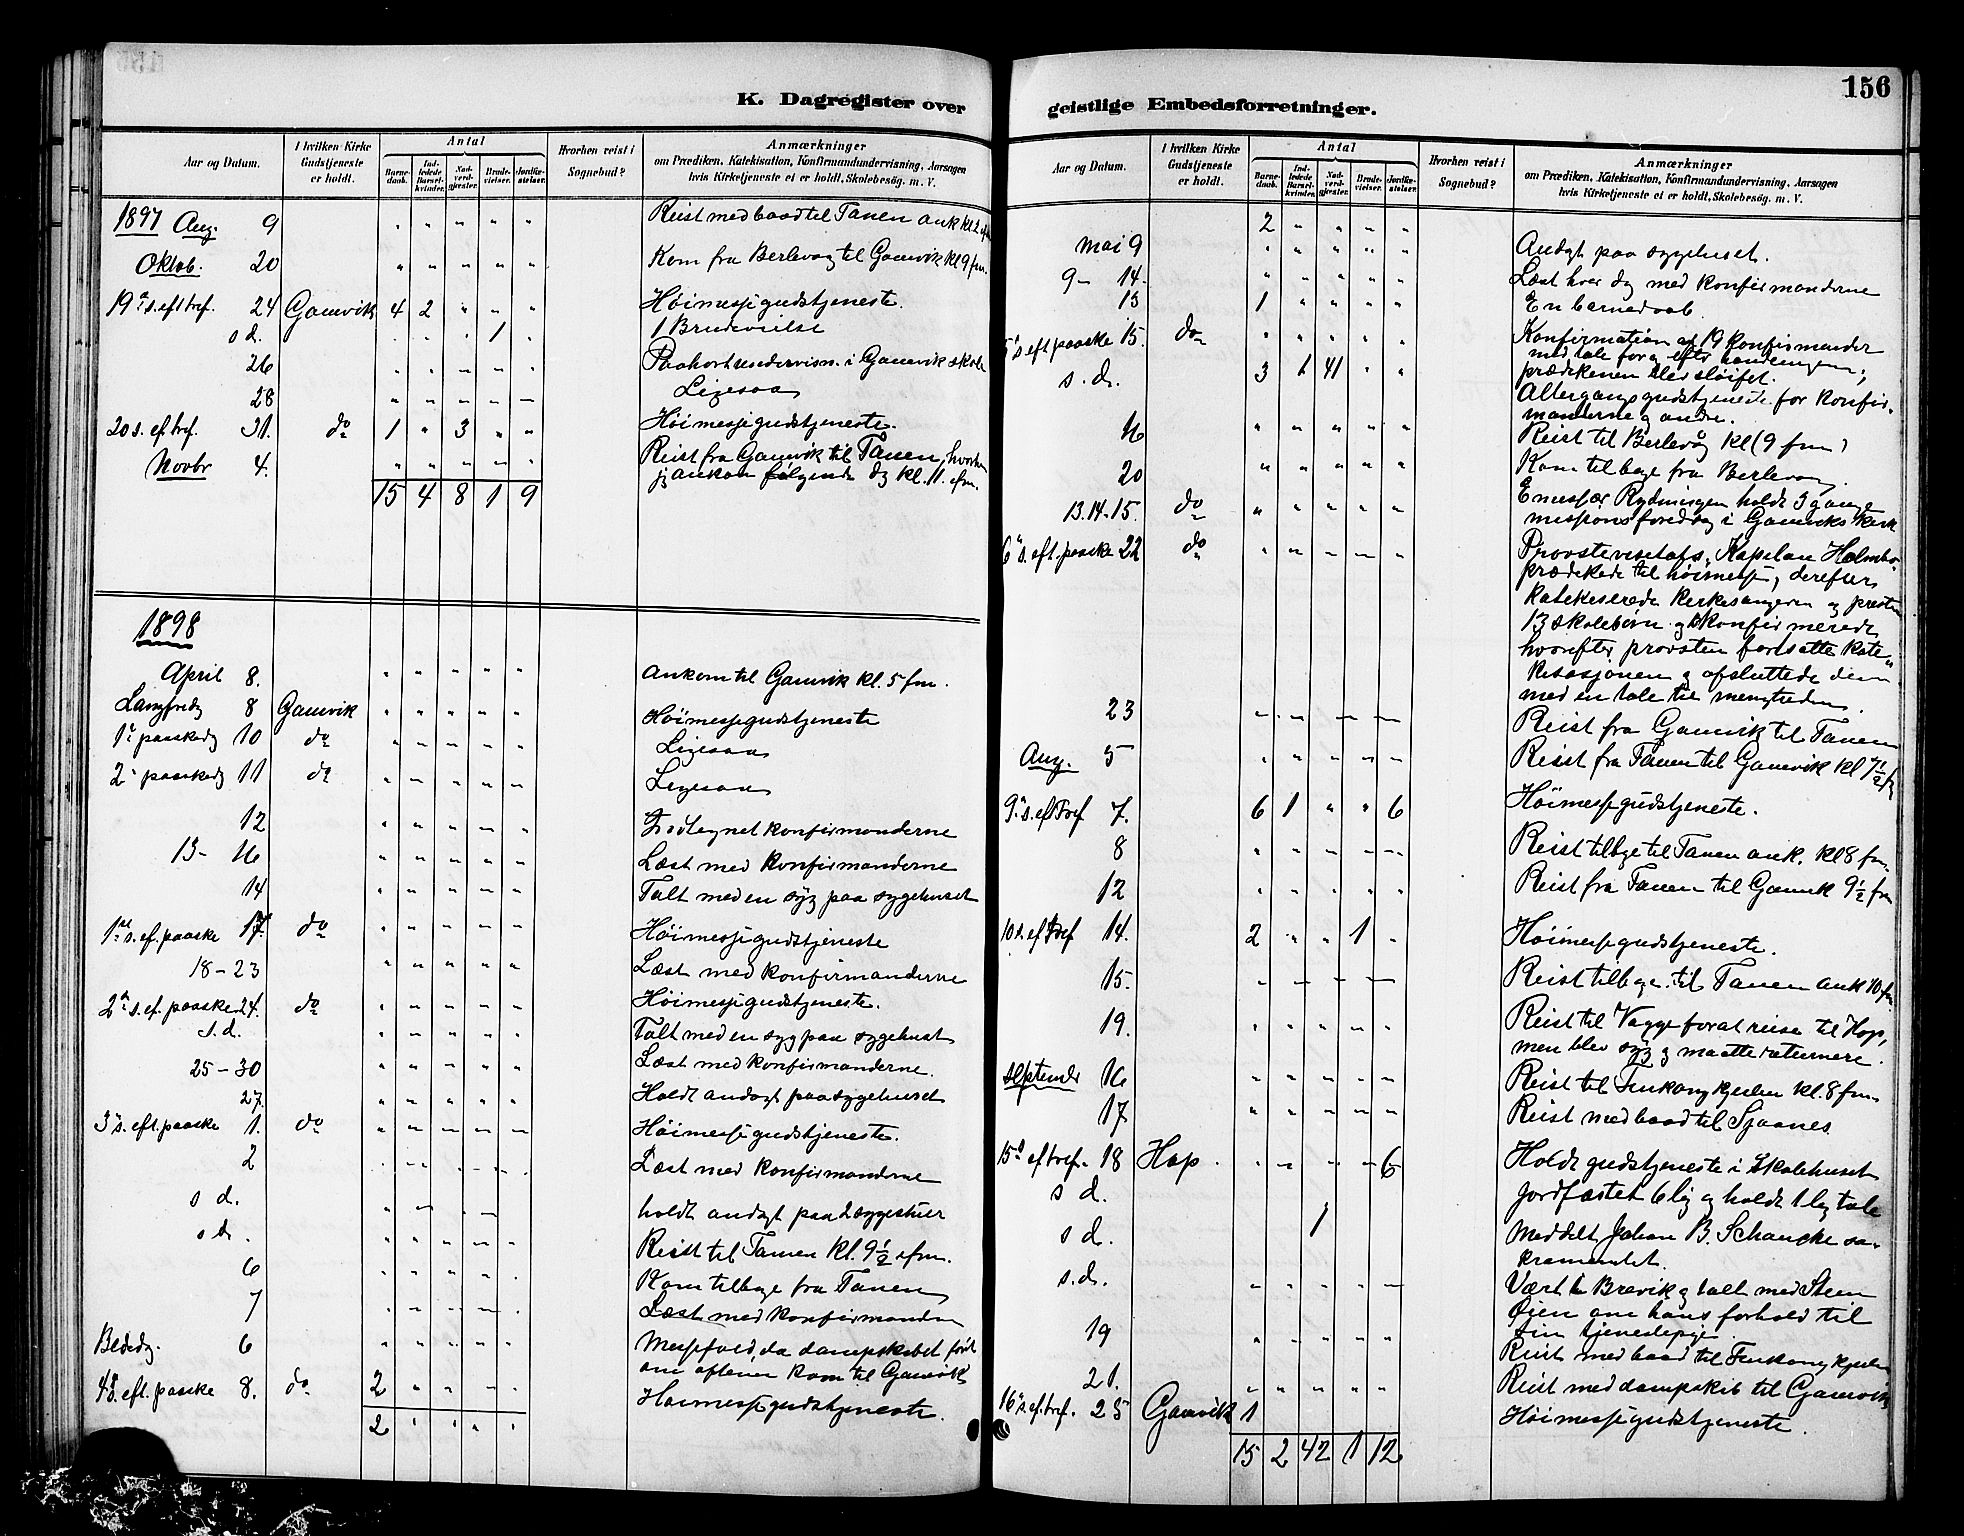 156
K. Dagregister over
Aar og Datum. I hvilken Kirke Gudstjeneste er holdt. Antal Barnedaab. Indledede Barselkvinder. Nadverdgjester. Brudevielser. Jordfæstelser. Hvorhen reist i Sognebud? Anmærkninger om Prædiken, Katekisation, Konfirmandundervisning, Aarsagen hvis Kirketjeneste ei er holdt, Skolebesøg. m. V.
1897 Aug. 9 " " " " " Reist med baad til Tanen ank kl 2 efm
Oktob. 20 " " " " " Kom fra Berlevaag til Gamvik kl 9 fm.
19de s. eft tref. 24 Gamvik 4 2 " " " Høimessegudstjeneste.
s d. " " " 1 " 1 Brudevielse
26 " " " " " Paahørt undervisn. i Gamvik skole
28 " " " " " Ligesaa
20 s. ef. tref. 31. do 1 " 3 " " Høimessegudstjeneste.
Novbr 4. " " " " " Reist fra Gamvik til Tanen, hvorhen
jeg ankom følgende dg kl. 11. efm.
15 4 8 1 9
1898
April 8. " " " " " Ankom til Gamvik kl. 5 fm.
Langfredg 8 Gamvik " " " " " Høimessegudstjeneste
1ste paaskedg 10 do " " " " " Ligesaa
2 paaskedg 11 do " " " " " Ligesaa
12 " " " " " Indtegnet konfirmanderne
13 - 16 " " " " " Læst med konfirmanderne
14 " " " " " Talt med en syg paa sygehuset
1ste s. ef. paaske 17. do " " " " " Høimessegudstjeneste
18 - 23 " " " " " Læst med konfirmanderne
2den s. ef. paaske 24. do " " " " " Høimessegudstjeneste.
s. d. " " " " " Talt med en syg paa sygehuset
25 - 30 " " " " " Læst med konfirmanderne.
27. " " " " " Holdt andagt paa sygehuset
3de s. eft. paaske 1. do " " " " " Høimessegudstjeneste.
2 " " " " " Læst med konfirmanderne
s d. " " " " " holdt andagt paa 2 sygestuer
s d. " " " " " Reist til Tanen kl. 9 1/2 efm.
6 " " " " " Kom tilbage fra Tanen
7 " " " " " Læst med konfirmanderne
Bededg. 6 " " " " " Messefald, da dampskibet først
om aftenen kom til Gamvik
4de s. eft. paaske 8. do 2 " " " " Høimessegudstjeneste.
2 " " " "
geistlige Embedsforretninger.
Aar og Datum. I hvilken Kirke Gudstjeneste er holdt. Antal Barnedaab. Indledede Barselkvinder. Nadverdgjester. Brudevielser. Jordfæstelser. Hvorhen reist i Sognebud? Anmærkninger om Prædiken, Katekisation, Konfirmandundervisning, Aarsagen hvis Kirketjeneste ei er holdt, Skolebesøg. m. V.
2 " " " "
mai 9 " " " " " Andagt paa sygehuset.
9 - 14. " " " " " Læst hver dg med konfirmanderne
13 1 " " " " En barnedaab
5te s. eft paaske 15. do " " " " " Konfirmation af 19 konfirmander
med tale for og efter handlingen;
prædikenen blev sløifet.
s. d. 3 1 41 " " Altergangsgudstjeneste for konfir-
manderne og andre.
16 " " " " " Reist til Berlevåg kl (9 fm)
20 " " " " " Kom tilbage fra Berlevaag.
13. 14 - 15. do " " " " " Emissær Rydningen holdt 3 gange
missionsforedrag i Gamviks kirk
6te s. eft. paaske 22 do " " " " " Provstevisitats. Kapelan Holmbo
prædikede til høimesse, derefter
katekiserede kirkesangeren og presten
13 skolebørn og konfirmerede
hvorefter provsten fortsatte kate-
kisasjonen og afsluttede den
med en tale til menigheden.
23 " " " " Reist fra Gamvik til Tanen
Aug. 5 " " " " " Reist fra Tanen til Gamvik kl 7 1/2 f
9de s. ef Tref 7. 6 1 " " 6 Høimessegudstjeneste.
8 " " " " " Reist tilbge til Tanen ank. kl 8 fm.
12 " " " " " Reist fra Tanen til Gamvik 9 1/2 fm
10 s. ef Tref 14. 2 " " 1 " Høimessegudstjeneste.
15. " " " " Reist tilbage til Tanen ank 10 fm.
19. " " " " " Reist til Vagge forat reise til Hop,
men blev syg og maatte returnere.
September 16 " " " " " Reist til Finkongkjeilen kl. 8 fm.
17. " " " " " Reist med baad til Sjaanes
15de ef tref. 18 Hop. " " " " 6 Holdt gudstjeneste i Skolehuset
s d. Jordfæstet 6 lig og holdt 1 lig tale
s d. 1 Meddelt Johan B. Schancke sa-
kramentet.
s. d. " " " " " Vært i Brevik og talt med Steen
Øien om hans forhold til
sin tjenestepige
19 " " " " " Reist med baad til Finkongkjeilen
21. " " " " " Reist med dampskib til Gamvik
16de s. ef. tref. 25 Gamvik 1 Høimessegudstjeneste.
15 2 42 1 12